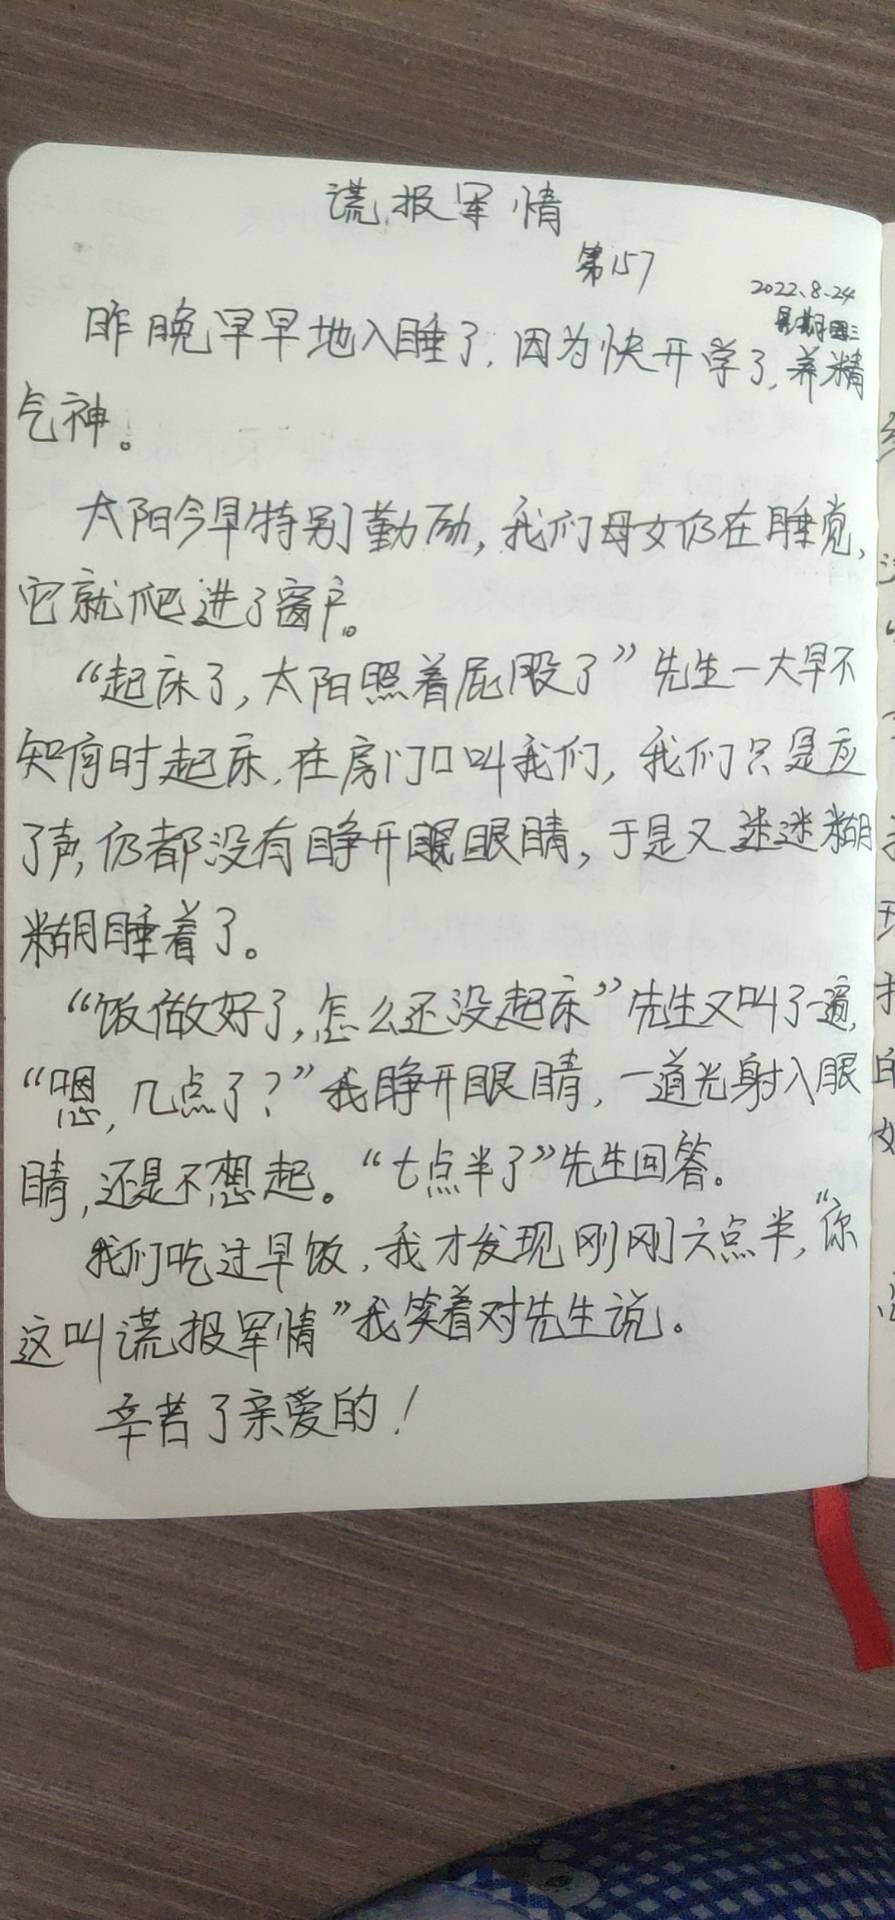 谎报军情
第157
2022.8.24
星期三
昨晚早早地入睡了，因为快开学了，养精
气神。
太阳今早特别勤励，我们母女仍在睡觉，
它就爬进了窗户。
“起床了，太阳照着屁股了”先生一大早不
知何时起床，在房门口叫我们，我们只是应
了声，仍都没有睁开眼眼睛，于是又迷迷糊
糊睡着了。
“饭做好了，怎么还没起床”先生又叫了一遍，
“嗯，几点了？”我睁开眼睛，一道光射入眼
睛，还是不想起。“七点半了”先生回答。
我们吃过早饭，我才发现刚刚六点半，“你
这叫谎报军情”我笑着对先生说。
辛苦了亲爱的！